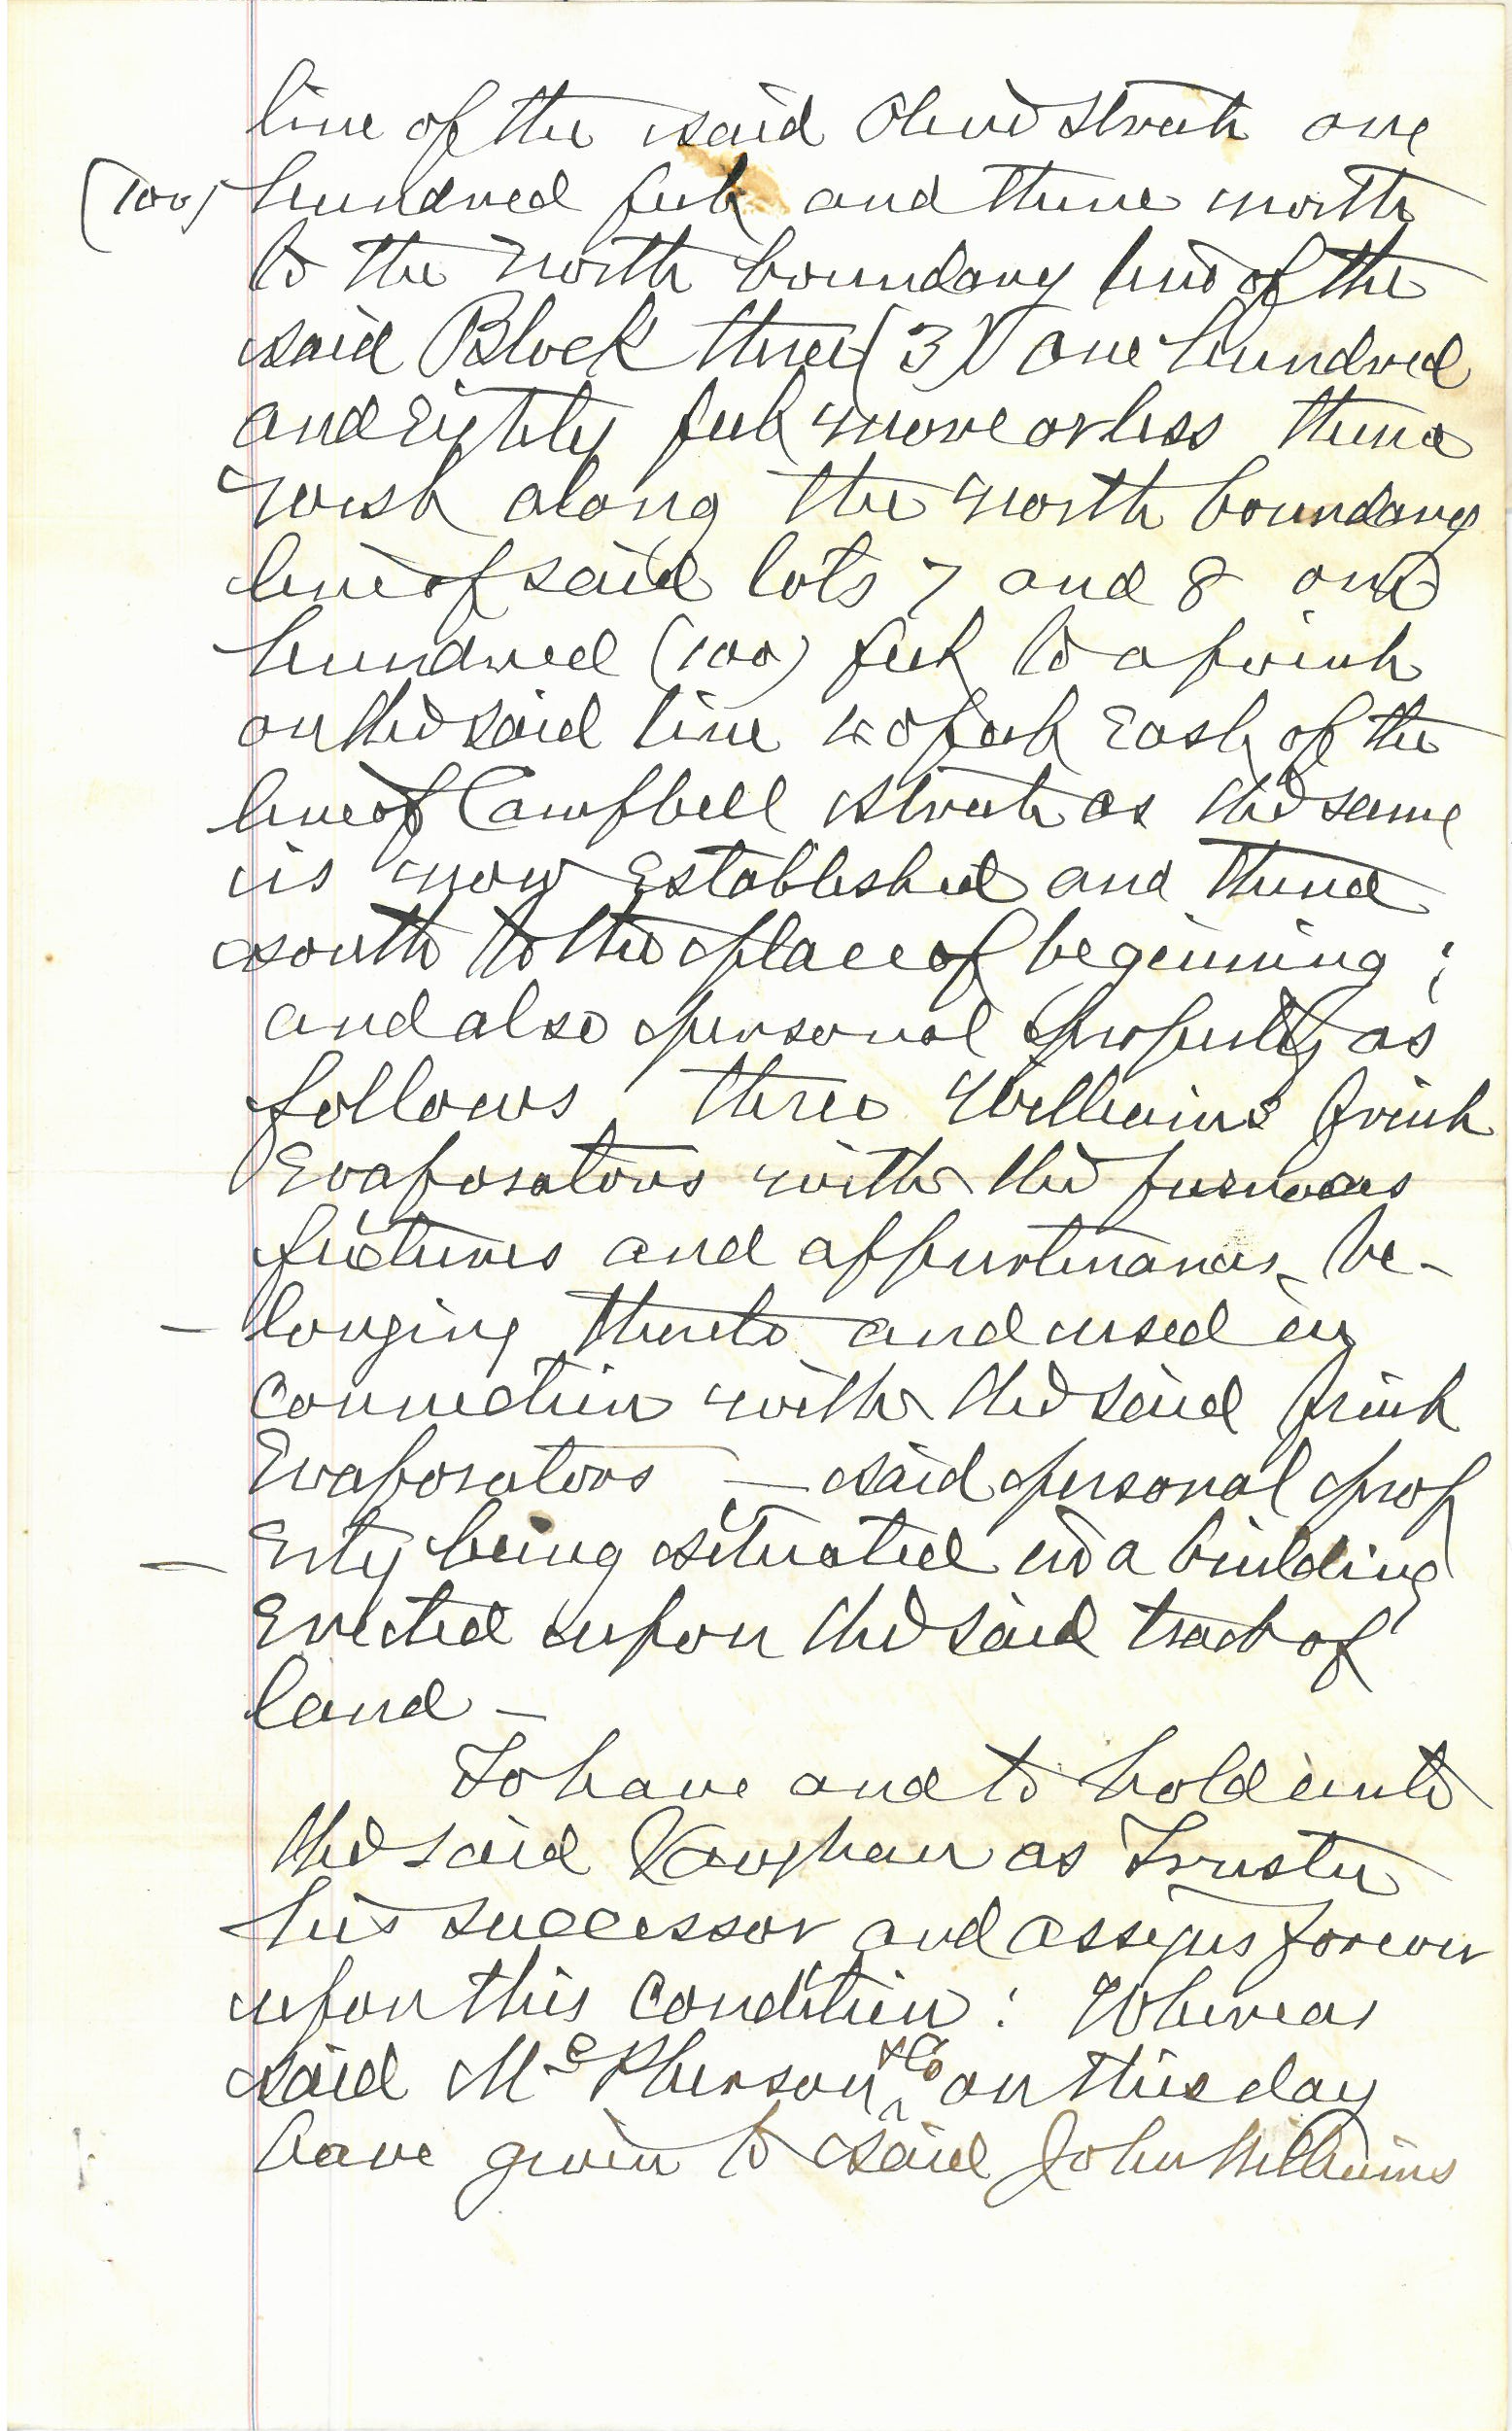 line of the said Olive Street one
(100) hundred feet and thence north
to the North boundary line of the
said Block three (3) one hundred
and Eighty feet more or less thence
West along the north boundary
line of said lots 7 and 8 one
hundred (100) feet to a point
on the said line 40 feet East of the
line of Campbell street as the same
is now Established and thence
south to the place of beginning;
and also personal property as
follows, three Williams fruit
Evaporators with the furnaces
fixtures and appurtenances be-
- longing thereto and used in
connection with the said fruit
Evaporators — said personal prop
- erty being situated in a building
Erected upon the said tract of
land —
To have and to hold unto
the said Vaughan as Trustee
his successor and assigns forever
upon this condition: Whereas
said McPherson & Co on this day
have given to said John Williams